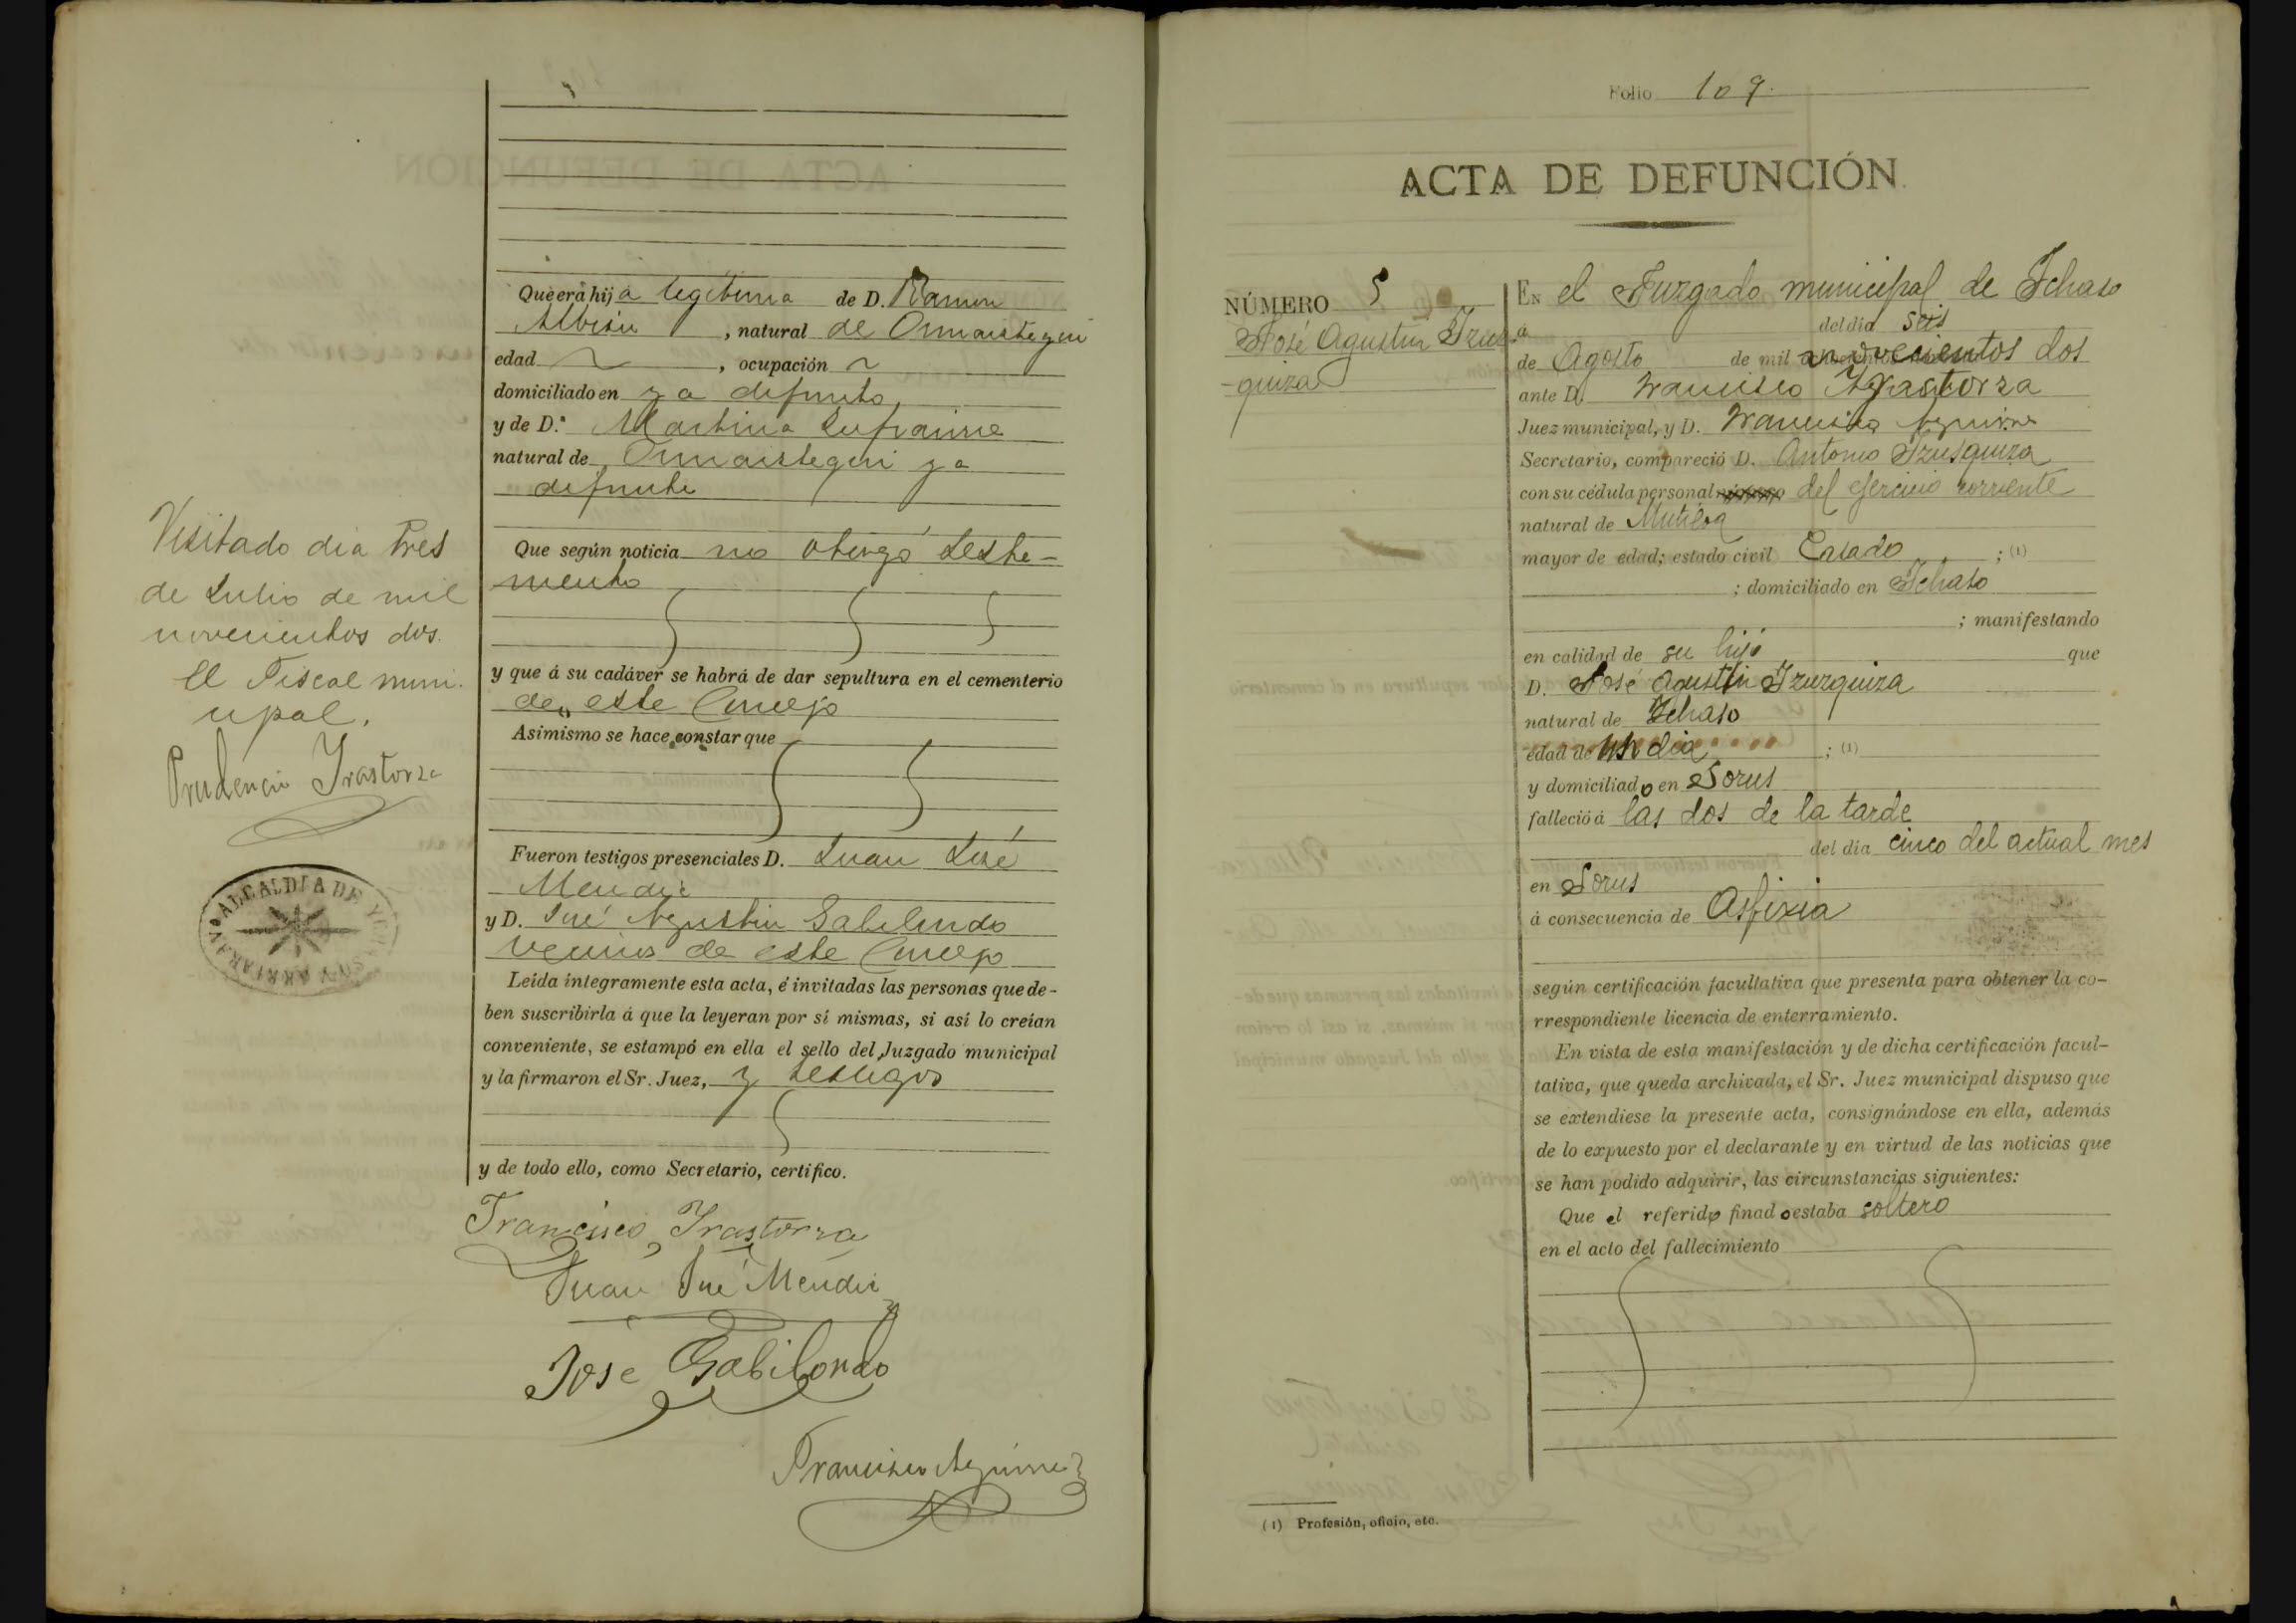 Que era hija legitima de D. Ramon
Albisu, natural de Ormaistegui
edad ~, ocupación ~
domiciliado en ya difunto
y de D.ª Martina
natural de Ormaistegui ya
difunta
Que según noticia no otorgó testa-
mento
y que á su cadáver se habrá de dar sepultura en el cementerio
de este Concejo
Asimismo se hace constar que
Fueron testigos presenciales D. Juan José
Mendia
y D. José Agustin Gabilondo
vecinos de este Concejo
Leída íntegramente esta acta, é invitadas las personas que de-
ben suscribirla á que la leyeran por sí mismas, si así lo creían
conveniente, se estampó en ella el sello del Juzgado municipal
y la firmaron el Sr. Juez, y testigos
y de todo ello, como Secretario, certifico.
Francisco Irastorza
Juan José Mendia
Jose Gabilondo
Francisco Aguirre
Visitado dia tres
de Julio de mil
novecientos dos.
El Fiscal muni-
cipal,
Prudencio Irastorza
ALCALDIA DE
Y ARRIARAN
Folio 109.
ACTA DE DEFUNCIÓN.
NÚMERO 5
José Agustin Izus-
quiza
EN el Juzgado municipal de Ichaso
á del día seis
de Agosto de mil novecientos dos
ante D. Francisco Irastorza
Juez municipal, y D. Francisco Aguirre
Secretario, compareció D. Antonio Izusquiza
con su cédula personal del ejercicio corriente
natural de Mutiloa
mayor de edad; estado civil Casado ; (1)
; domiciliado en Ichaso
; manifestando
en calidad de su hijo que
D. José Agustin Izurquiza
natural de Ichaso
edad de un dia ; (1)
y domiciliado en Sorus
falleció á las dos de la tarde
del día cinco del actual mes
en Sorus
á consecuencia de Asfixia
según certificación facultativa que presenta para obtener la co-
rrespondiente licencia de enterramiento.
En vista de esta manifestación y de dicha certificación facul-
tativa, que queda archivada, el Sr. Juez municipal dispuso que
se extendiese la presente acta, consignándose en ella, además
de lo expuesto por el declarante y en virtud de las noticias que
se han podido adquirir, las circunstancias siguientes:
Que el referido finado estaba soltero
en el acto del fallecimiento
(1) Profesión, oficio, etc.